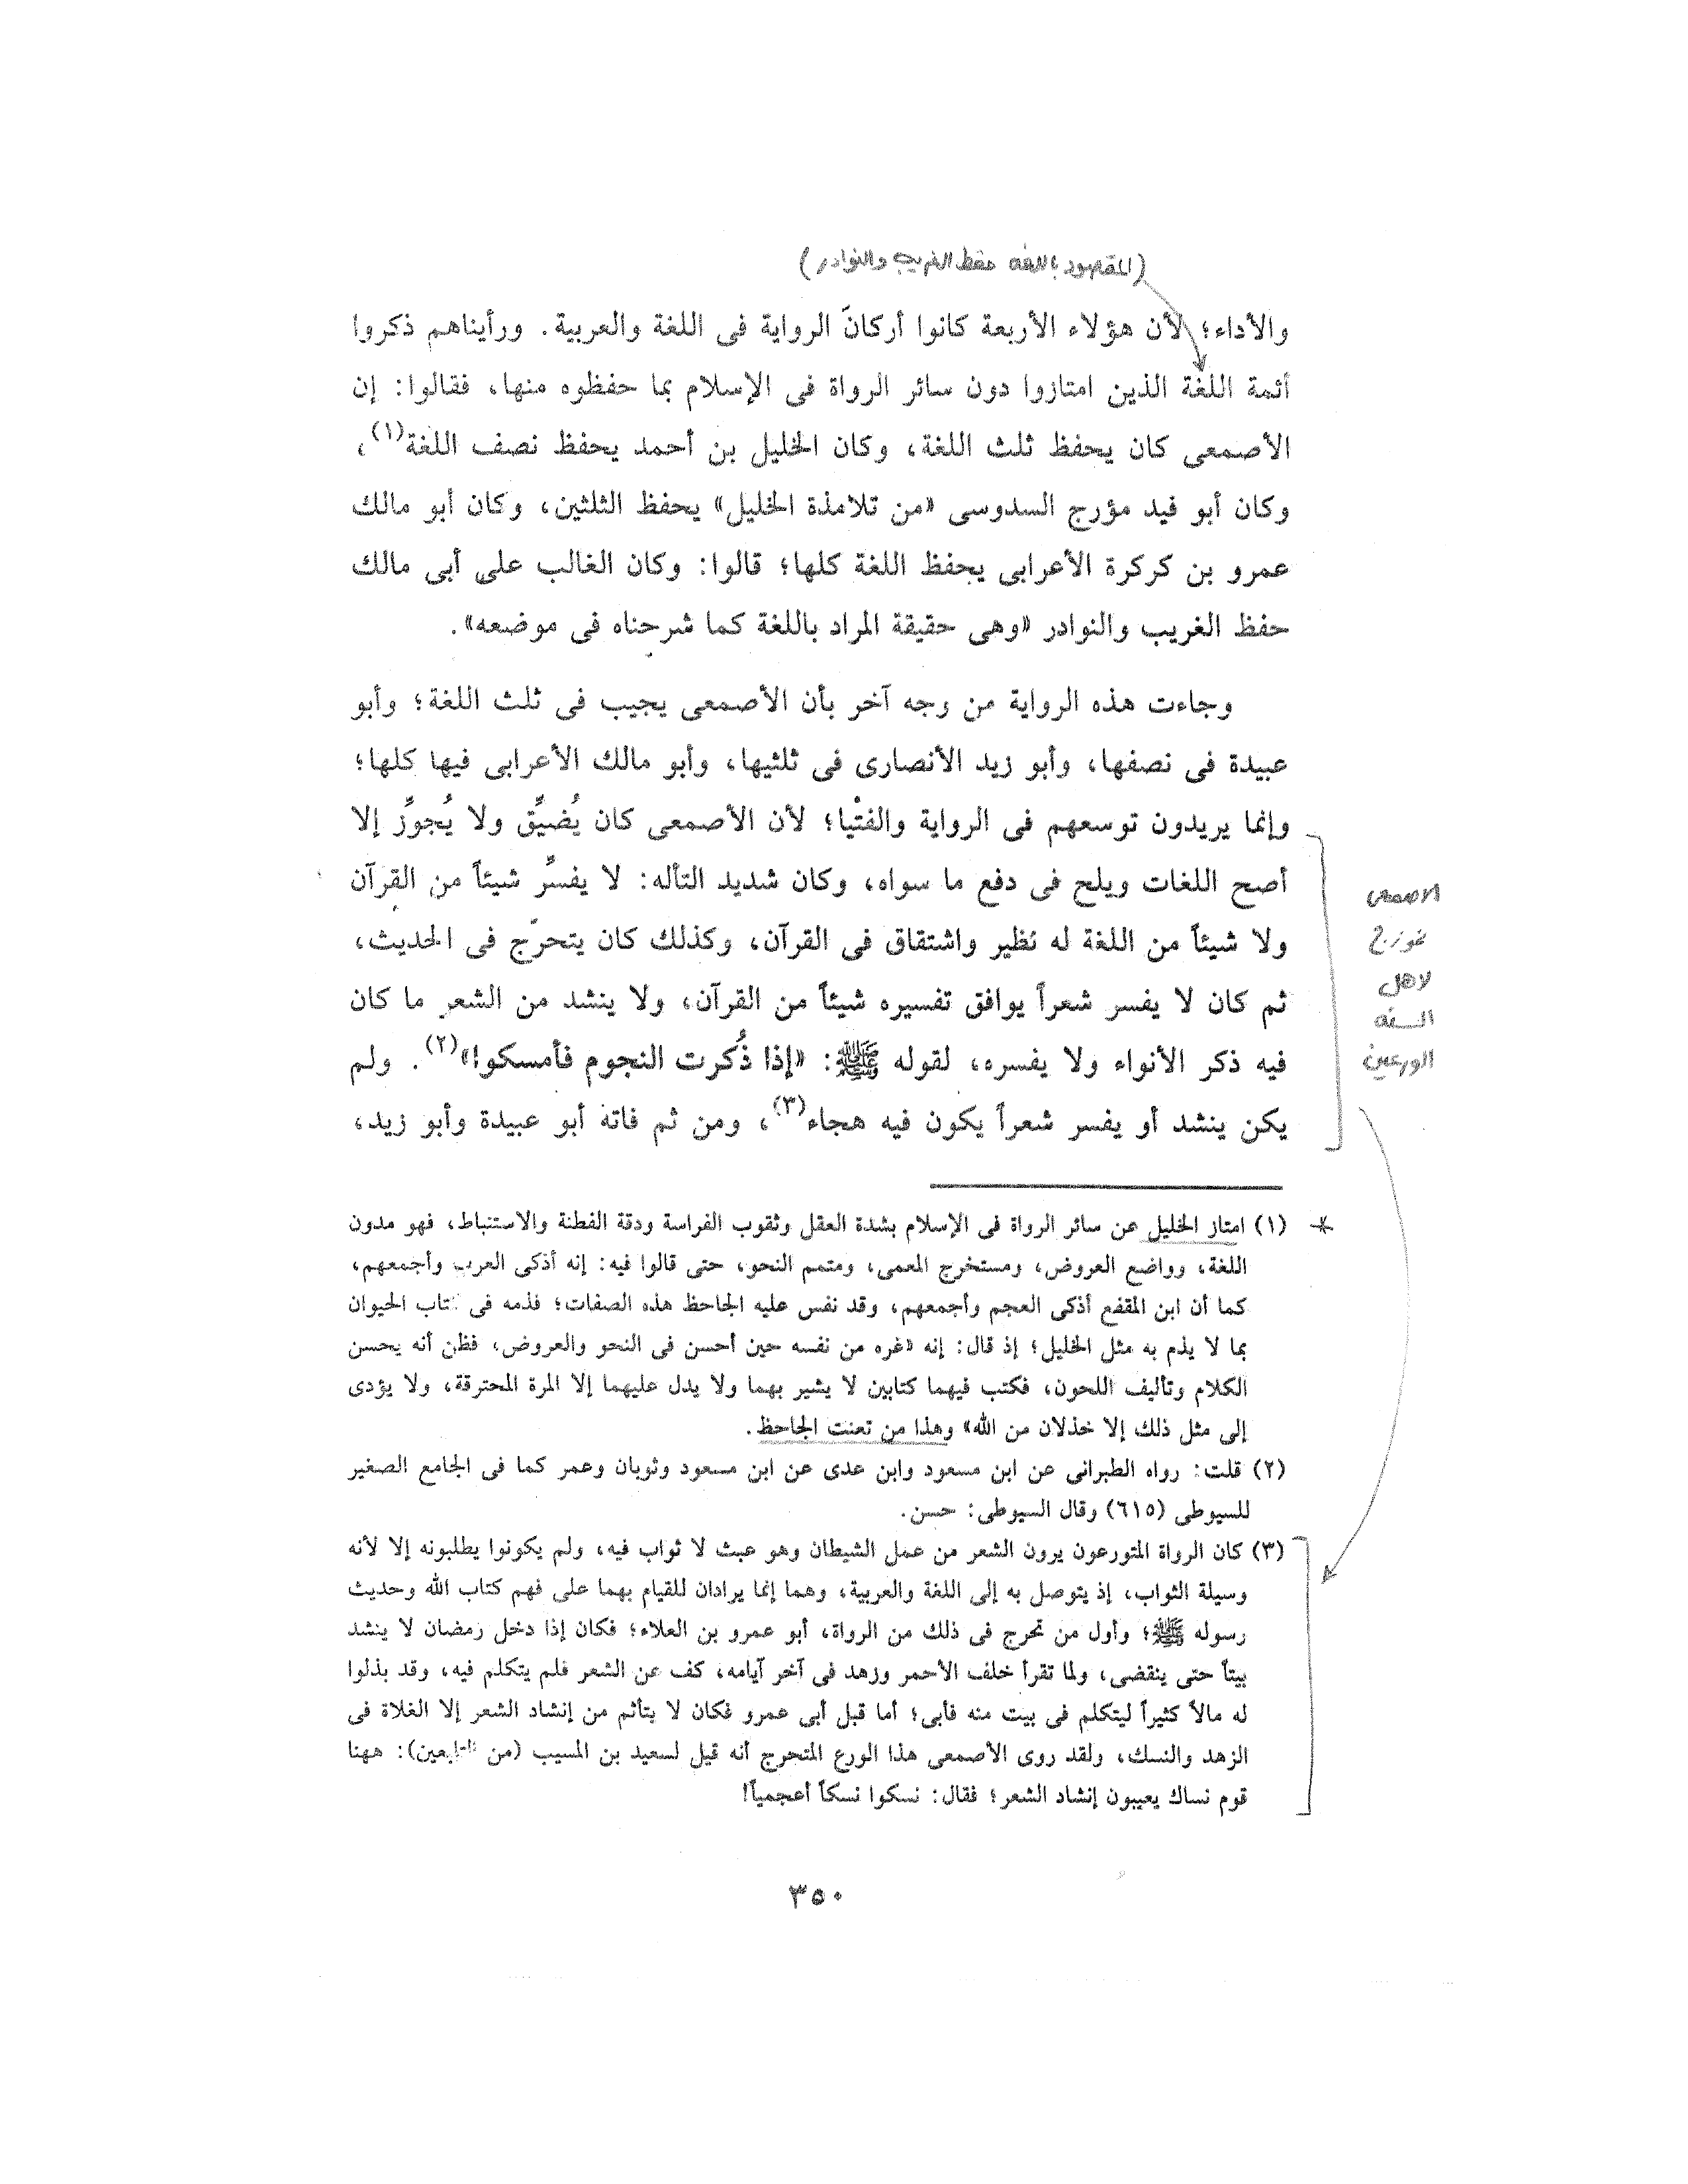 (المقصود باللغة حفظ الغريب والنوادر)
والأداء؛ لأن هؤلاء الأربعة كانوا أركانَ الرواية فى اللغة والعربية. ورأيناهم ذكروا
أئمة اللغة الذين امتازوا دون سائر الرواة فى الإسلام بما حفظوه منها، فقالوا: إن
الأصمعى كان يحفظ ثلث اللغة، وكان الخليل بن أحمد يحفظ نصف اللغة(١)،
وكان أبو فيد مؤرج السدوسى «من تلامذة الخليل» يحفظ الثلثين، وكان أبو مالك
عمرو بن كركرة الأعرابى يحفظ اللغة كلها؛ قالوا: وكان الغالب على أبى مالك
حفظ الغريب والنوادر «وهى حقيقة المراد باللغة كما شرحناه فى موضعه».
وجاءت هذه الرواية من وجه آخر بأن الأصمعى يجيب فى ثلث اللغة؛ وأبو
عبيدة فى نصفها، وأبو زيد الأنصارى فى ثلثيها، وأبو مالك الأعرابى فيها كلها؛
وإنما يريدون توسعهم فى الرواية والفتْيا؛ لأن الأصمعى كان يُضيِّق ولا يُجوِّز إلا
أصح اللغات ويلح فى دفع ما سواه، وكان شديد التأله: لا يفسِّر شيئاً من القرآن
ولا شيئاً من اللغة له نظير واشتقاق فى القرآن، وكذلك كان يتحرّج فى الحديث،
ثم كان لا يفسر شعراً يوافق تفسيره شيئاً من القرآن، ولا ينشد من الشعر ما كان
فيه ذكر الأنواء ولا يفسره، لقوله ﷺ: «إذا ذُكرت النجوم فأمسكوا»(٢). ولم
يكن ينشد أو يفسر شعراً يكون فيه هجاء(٣)، ومن ثم فاته أبو عبيدة وأبو زيد،
الاصمعى
نموذج
لاهل
السنه
الورعين
(١) امتاز الخليل عن سائر الرواة فى الإسلام بشدة العقل وثقوب الفراسة ودقة الفطنة والاستنباط، فهو مدون
اللغة، وواضع العروض، ومستخرج المعمى، ومتمم النحو، حتى قالوا فيه: إنه أذكى العرب وأجمعهم،
كما أن ابن المقفع أذكى العجم وأجمعهم، وقد نفس عليه الجاحظ هذه الصفات؛ فذمه فى كتاب الحيوان
بما لا يذم به مثل الخليل؛ إذ قال: إنه «غره من نفسه حين أحسن فى النحو والعروض، فظن أنه يحسن
الكلام وتأليف اللحون، فكتب فيهما كتابين لا يشير بهما ولا يدل عليهما إلا المرة المحترقة، ولا يؤدى
إلى مثل ذلك إلا خذلان من الله» وهذا من تعنت الجاحظ.
(٢) قلت: رواه الطبرانى عن ابن مسعود وابن عدى عن ابن مسعود وثوبان وعمر كما فى الجامع الصغير
للسيوطى (٦١٥) وقال السيوطى: حسن.
(٣) كان الرواة المتورعون يرون الشعر من عمل الشيطان وهو عبث لا ثواب فيه، ولم يكونوا يطلبونه إلا لأنه
وسيلة الثواب، إذ يتوصل به إلى اللغة والعربية، وهما إنما يرادان للقيام بهما على فهم كتاب الله وحديث
رسوله ﷺ؛ وأول من تحرج فى ذلك من الرواة، أبو عمرو بن العلاء؛ فكان إذا دخل رمضان لا ينشد
بيتاً حتى ينقضى، ولما تقرأ خلف الأحمر وزهد فى آخر أيامه، كف عن الشعر فلم يتكلم فيه، وقد بذلوا
له مالاً كثيراً ليتكلم فى بيت منه فأبى؛ أما قبل أبى عمرو فكان لا يتأثم من إنشاد الشعر إلا الغلاة فى
الزهد والنسك، ولقد روى الأصمعى هذا الورع المتحرج أنه قيل لسعيد بن المسيب (من التابعين): ههنا
قوم نساك يعيبون إنشاد الشعر؛ فقال: نسكوا نسكاً أعجمياً!
٣٥٠